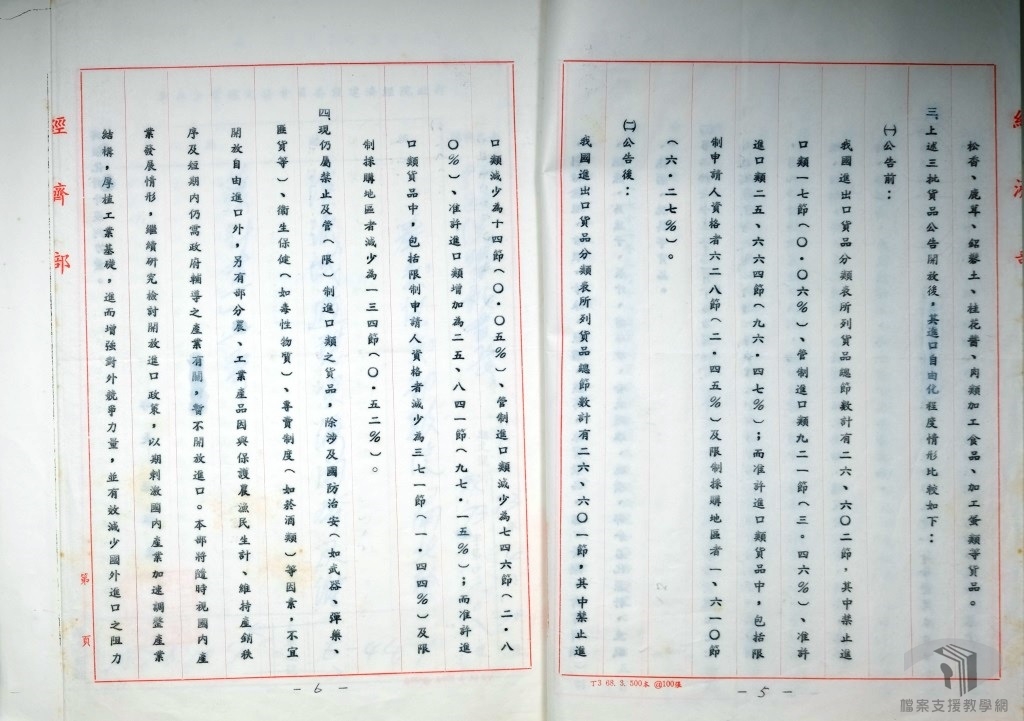 松香、鹿茸、鋁礬土、桂花醬、肉類加工食品、加工蛋類等貨品。
三、上述三批貨品公告開放後，其進口自由化程度情形比較如下：
㈠公告前：
我國進出口貨品分類表所列貨品總節數計有二六、六〇二節，其中禁止進
口類一七節（〇·〇六％）、管制進口類九二一節（三。四六％）、准許
進口類二五、六六四節（九六·四七％）；而准許進口類貨品中，包括限
制申請人資格者六二八節（二·四五％）及限制採購地區者一、六一〇節
（六·二七％）。
㈡公告後：
我國進出口貨品分類表所列貨品總節數計有二六、六〇一節，其中禁止進
T3 68. 3. 500本 @100張
- 5 -
口類減少為十四節（〇·〇五％）、管制進口類減少為七四六節（二·八
〇％）、准許進口類增加為二五、八四一節（九七·一五％）；而准許進
口類貨品中，包括限制申請人資格者減少為三七一節（一·四四％）及限
制採購地區者減少為一三四節（〇·五二％）。
四、現仍屬禁止及管（限）制進口類之貨品，除涉及國防治安（如武器、彈藥、
匪貨等）、衞生保健（如毒性物質）、專賣制度（如菸酒類）等因素，不宜
開放自由進口外，另有部分農、工業產品因與保護農漁民生計、維持產銷秩
序及短期內仍需政府輔導之產業有關，暫不開放進口。本部將隨時視國內產
業發展情形，繼續研究檢討開放進口政策，以期刺激國內產業加速調整產業
結構，厚植工業基礎，進而增強對外競爭力量，並有效減少國外進口之阻力
經濟部
第 頁
- 6 -
檔案支援教學網